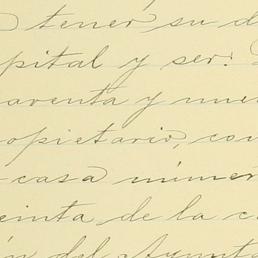 tener su d
pital y ser:
aventa y nue
opietario, con
casa númer
einta de la c
ón del Ayunta